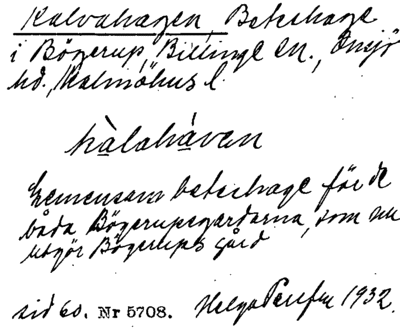 Kalvahagen, Beteshage
i Bögerup, Billinge sn., Onsjö
hd., Malmöhus l.
kàlahávan
Gemensam beteshage för de
båda Bögerupsgårdarna, som nu
utgör Bögerups gård
sid 60. Nr 5708. Helga 1932.